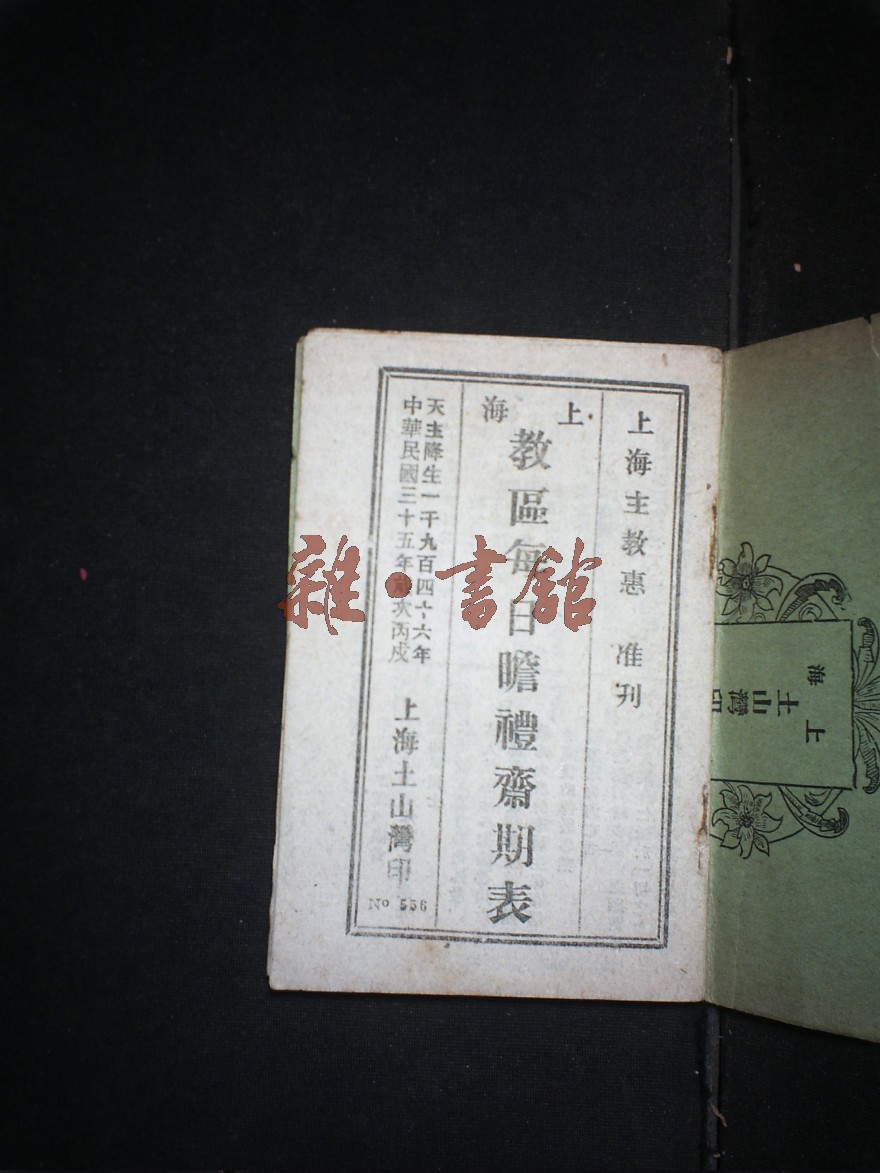 上海主教惠 准刊
上海
教區每日瞻禮齋期表
天主降生一千九百四十六年
中華民國三十五年歲次丙戌
上海土山灣印
No 556
雜·書館
上海
土山灣印